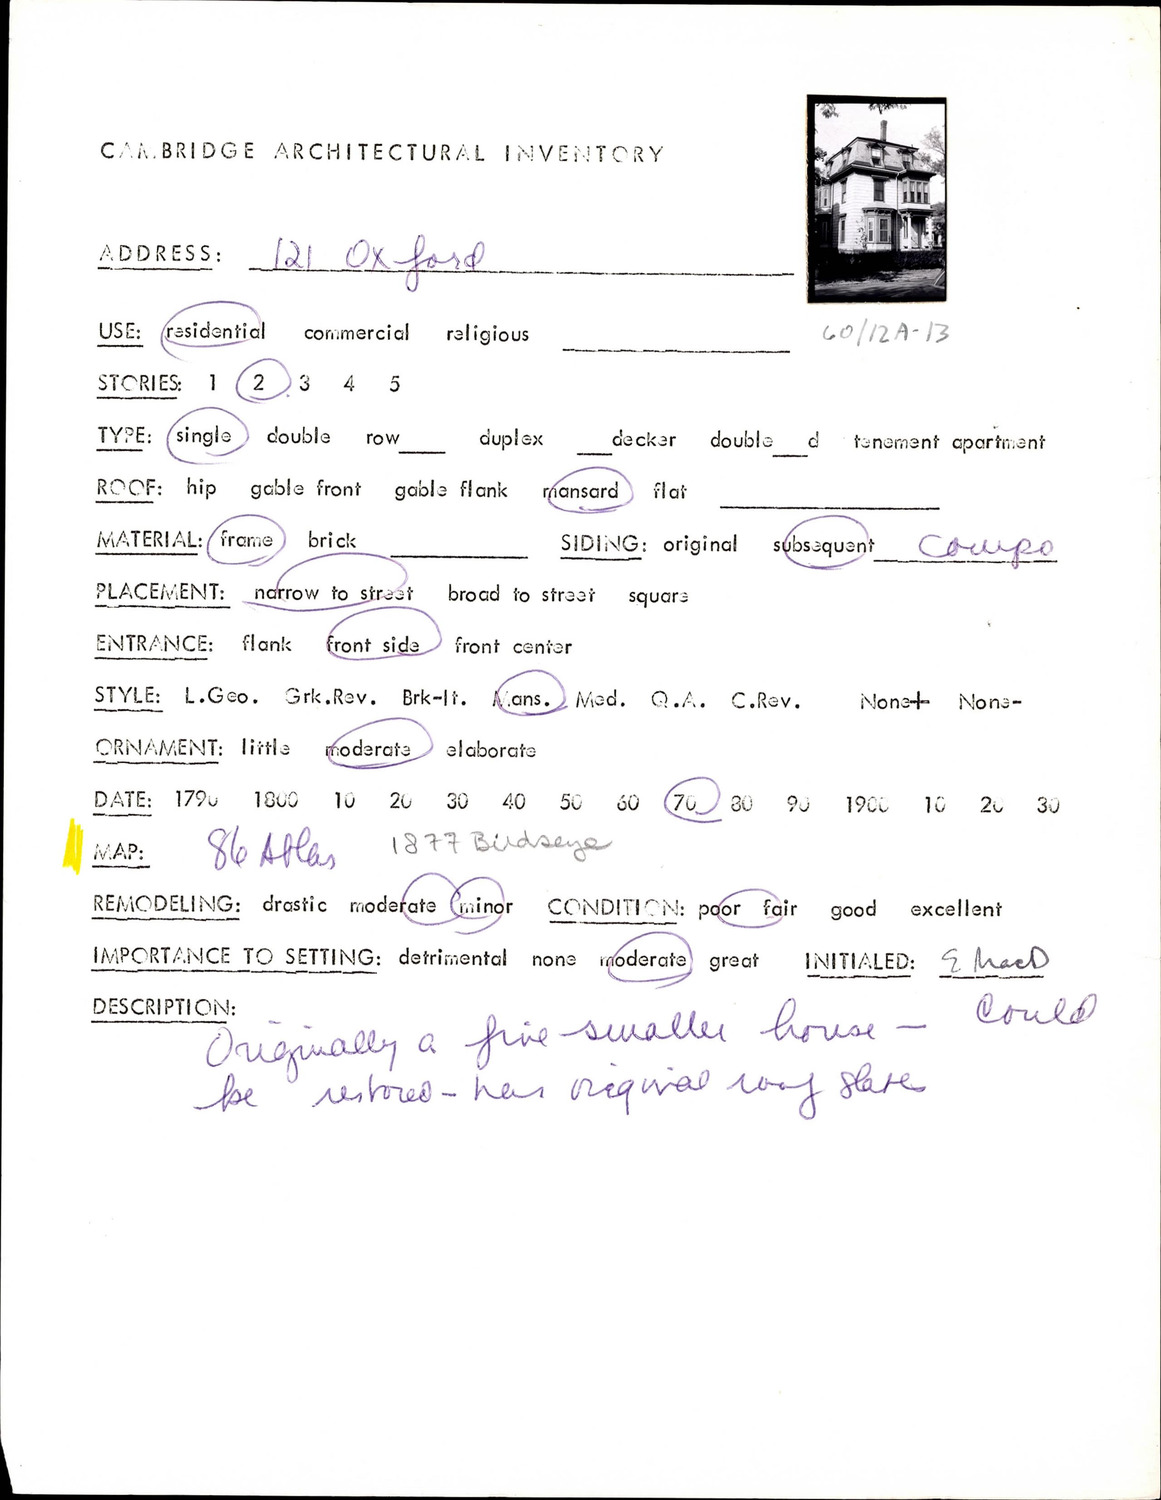 CAMBRIDGE ARCHITECTURAL INVENTORY
ADDRESS: 121 Oxford
USE: residential commercial religious
60/12A-13
STORIES: 1 2 3 4 5
TYPE: single double row___ duplex ___decker double___d tenement apartment
ROOF: hip gable front gable flank mansard flat
MATERIAL: frame brick SIDING: original subsequent Compo
PLACEMENT: narrow to street broad to street square
ENTRANCE: flank front side front center
STYLE: L.Geo. Grk.Rev. Brk-It. Mans. Med. Q.A. C.Rev. None+ None-
ORNAMENT: little moderate elaborate
DATE: 1790 1800 10 20 30 40 50 60 70 80 90 1900 10 20 30
MAP: 86 Atlas 1877 Birdseye
REMODELING: drastic moderate minor CONDITION: poor fair good excellent
IMPORTANCE TO SETTING: detrimental none moderate great INITIALED: E MacD
DESCRIPTION:
Originally a fine smaller house - Could
be restored - has original roof slates